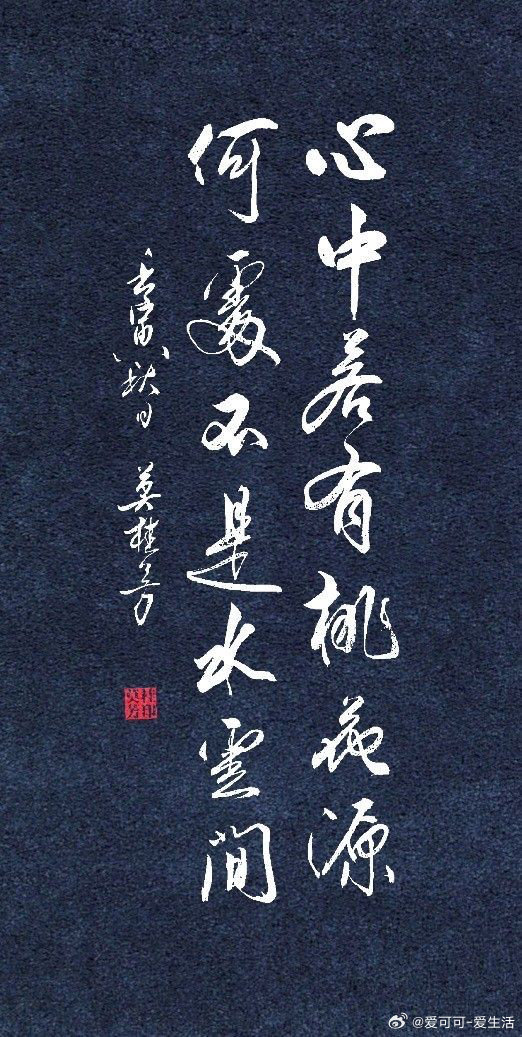 心中若有桃花源
何處不是水雲間
壬寅秋日 莫桂芳
@爱可可-爱生活